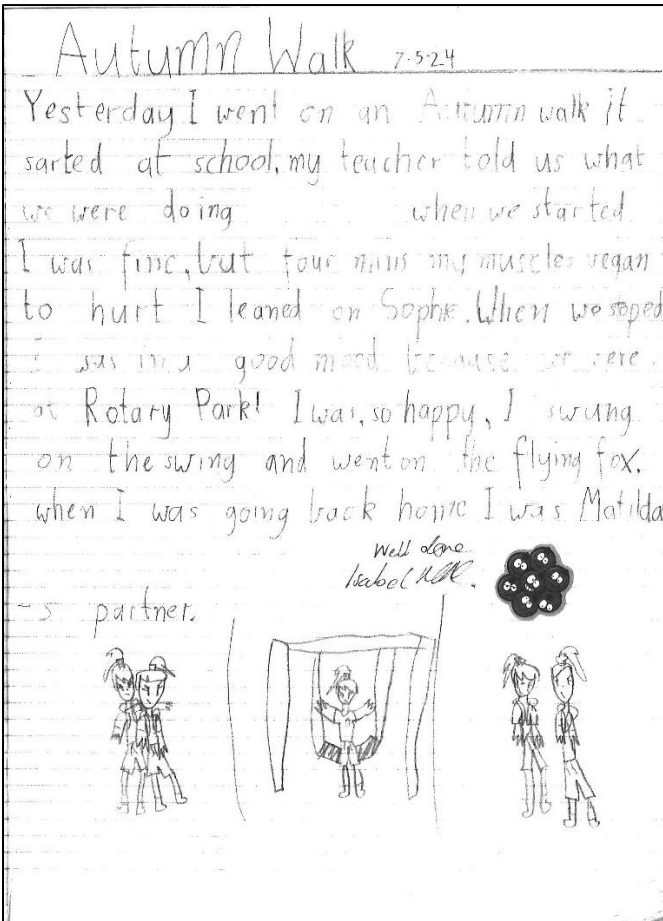 Autumn Walk 7-5-24
Yesterday I went on an Autumn walk it
sarted at school. my teacher told us what
we were doing when we started
I was fine, but four mins my muscles vegan
to hurt I leaned on Sophie. When we stoped
I was in a good mood because we were
at Rotary Park! I was, so happy, I swung
on the swing and went on the flying fox.
when I was going back home I was Matilda
-s partner.
Well done
Isabel